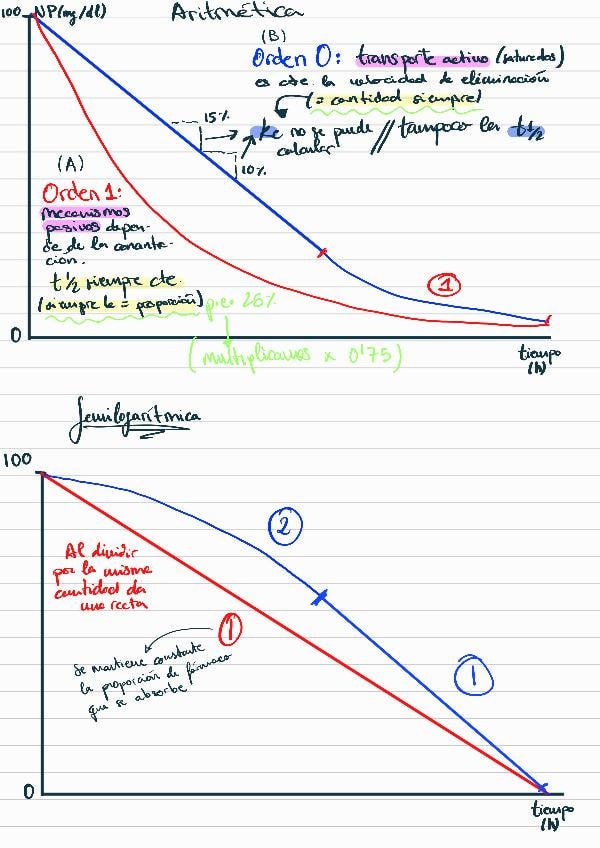 100
NP(mg/dl)
Aritmética
(B)
Orden 0: transporte activo (saturados)
es cte. la velocidad de eliminación
(= cantidad siempre)
15%
Ke no se puede // tampoco la t1/2
calcular
10%
(A)
Orden 1:
mecanismos
pasivos depen-
de de la concentra-
ción.
t1/2 siempre cte
(siempre la = proporción) p.e. 25%
(multiplicamos x 0'75)
1
0
tiempo
(h)
Semilogarítmica
100
2
Al dividir
por la misma
cantidad da
una recta
1
Se mantiene constante
la proporción de fármaco
que se absorbe
1
0
tiempo
(h)